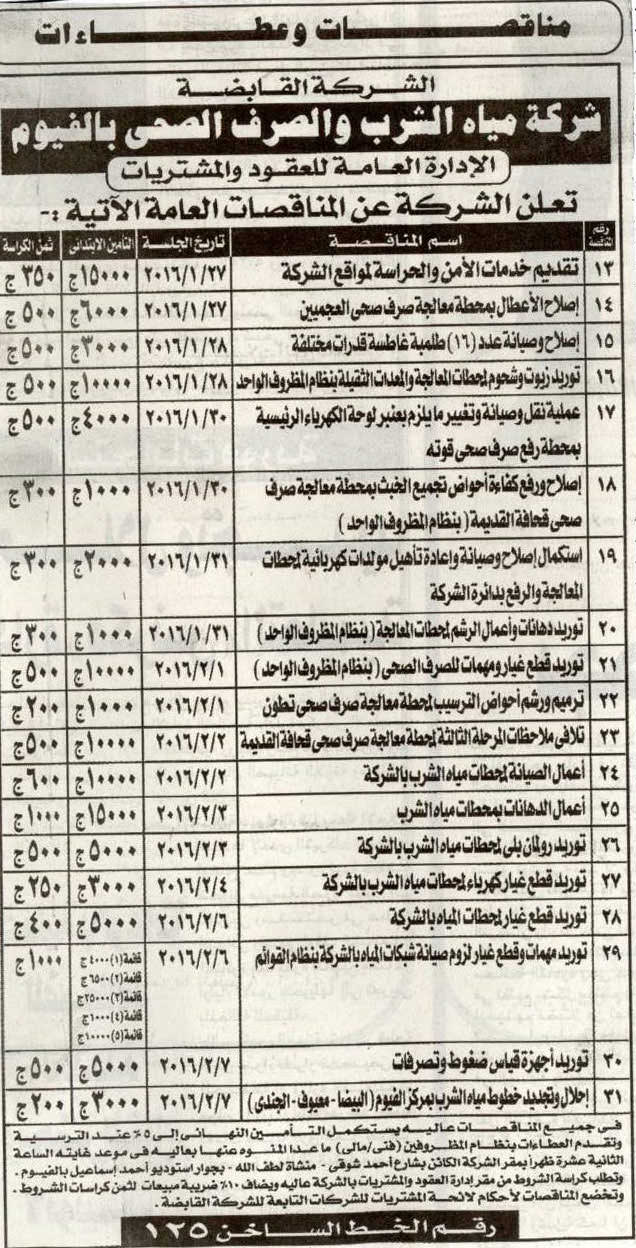 مناقصات وعطاءات
الشركة القابضة
شركة مياه الشرب والصرف الصحى بالفيوم
الإدارة العامة للعقود والمشتريات
تعلن الشركة عن المناقصات العامة الآتية :-
رقم المناقصة اسم المناقصة تاريخ الجلسة التأمين الابتدائى ثمن الكراسة
١٣ تقديم خدمات الأمن والحراسة لمواقع الشركة ٢٠١٦/١/٢٧ ١٥٠٠٠ج ٣٥٠ج
١٤ إصلاح الأعطال بمحطة معالجة صرف صحى العجميين ٢٠١٦/١/٢٧ ٦٠٠٠ج ٥٠٠ج
١٥ إصلاح وصيانة عدد (١٦) طلمبة غاطسة قدرات مختلفة ٢٠١٦/١/٢٨ ٣٠٠٠ج ٥٠٠ج
١٦ توريد زيوت وشحوم لمحطات المعالجة والمعدات الثقيلة بنظام المظروف الواحد ٢٠١٦/١/٢٨ ١٠٠٠٠ج ٥٠٠ج
١٧ عملية نقل وصيانة وتغيير ما يلزم بعنبر لوحة الكهرباء الرئيسية ٢٠١٦/١/٣٠ ٤٠٠٠ج ٥٠٠ج
بمحطة رفع صرف صحى قوته
١٨ إصلاح ورفع كفاءة أحواض تجميع الخبث بمحطة معالجة صرف ٢٠١٦/١/٣٠ ١٠٠٠ج ٣٠٠ج
صحى قحافة القديمة (بنظام المظروف الواحد)
١٩ استكمال إصلاح وصيانة وإعادة تأهيل مولدات كهربائية لمحطات ٢٠١٦/١/٣١ ٢٠٠٠ج ٣٠٠ج
المعالجة والرفع بدائرة الشركة
٢٠ توريد دهانات وأعمال الرشم لمحطات المعالجة (بنظام المظروف الواحد) ٢٠١٦/١/٣١ ١٠٠٠ج ٣٠٠ج
٢١ توريد قطع غيار ومهمات للصرف الصحى (بنظام المظروف الواحد) ٢٠١٦/٢/١ ١٠٠٠٠ج ٥٠٠ج
٢٢ ترميم ورشم أحواض الترسيب لمحطة معالجة صرف صحى تطون ٢٠١٦/٢/١ ١٠٠٠ج ٢٠٠ج
٢٣ تلافى ملاحظات المرحلة الثالثة لمحطة معالجة صرف صحى قحافة القديمة ٢٠١٦/٢/٢ ١٠٠٠٠ج ٥٠٠ج
٢٤ أعمال الصيانة لمحطات مياه الشرب بالشركة ٢٠١٦/٢/٢ ١٠٠٠٠ج ٦٠٠ج
٢٥ أعمال الدهانات بمحطات مياه الشرب ٢٠١٦/٢/٣ ١٥٠٠٠ج ١٠٠٠ج
٢٦ توريد رولمان بلى لمحطات مياه الشرب بالشركة ٢٠١٦/٢/٣ ٥٠٠٠ج ٥٠٠ج
٢٧ توريد قطع غيار كهرباء لمحطات مياه الشرب بالشركة ٢٠١٦/٢/٤ ٣٠٠٠ج ٢٥٠ج
٢٨ توريد قطع غيار لمحطات المياه بالشركة ٢٠١٦/٢/٦ ٥٠٠٠ج ٤٠٠ج
٢٩ توريد مهمات وقطع غيار لزوم صيانة شبكات المياه بالشركة بنظام القوائم ٢٠١٦/٢/٦ قائمة (١) ٤٠٠٠ج ١٠٠٠ج
قائمة (٢) ٦٥٠٠ج
قائمة (٣) ٢٥٠٠٠ج
قائمة (٤) ١٠٠٠ج
قائمة (٥) ١٠٠٠٠ج
٣٠ توريد أجهزة قياس ضغوط وتصرفات ٢٠١٦/٢/٧ ٥٠٠٠ج ٥٠٠ج
٣١ إحلال وتجديد خطوط مياه الشرب بمركز الفيوم (البيضا - معيوف - الجندى) ٢٠١٦/٢/٧ ٣٠٠٠ج ٢٠٠ج
فى جميع المناقصات عاليه يستكمل التأمين النهائى إلى ٥٪ عند الترسية
وتقدم العطاءات بنظام المظروفين (فنى/مالى) ما عدا المنوه عنها بعاليه فى موعد غايته الساعة
الثانية عشرة ظهراً بمقر الشركة الكائن بشارع أحمد شوقى - منشأة لطف الله - بجوار استوديو أحمد إسماعيل بالفيوم.
وتطلب كراسة الشروط من مقر إدارة العقود والمشتريات بالشركة عاليه ويضاف ١٠٪ ضريبة مبيعات لثمن كراسات الشروط.
وتخضع المناقصات لأحكام لائحة المشتريات للشركات التابعة للشركة القابضة.
رقم الخط الساخن ١٢٥